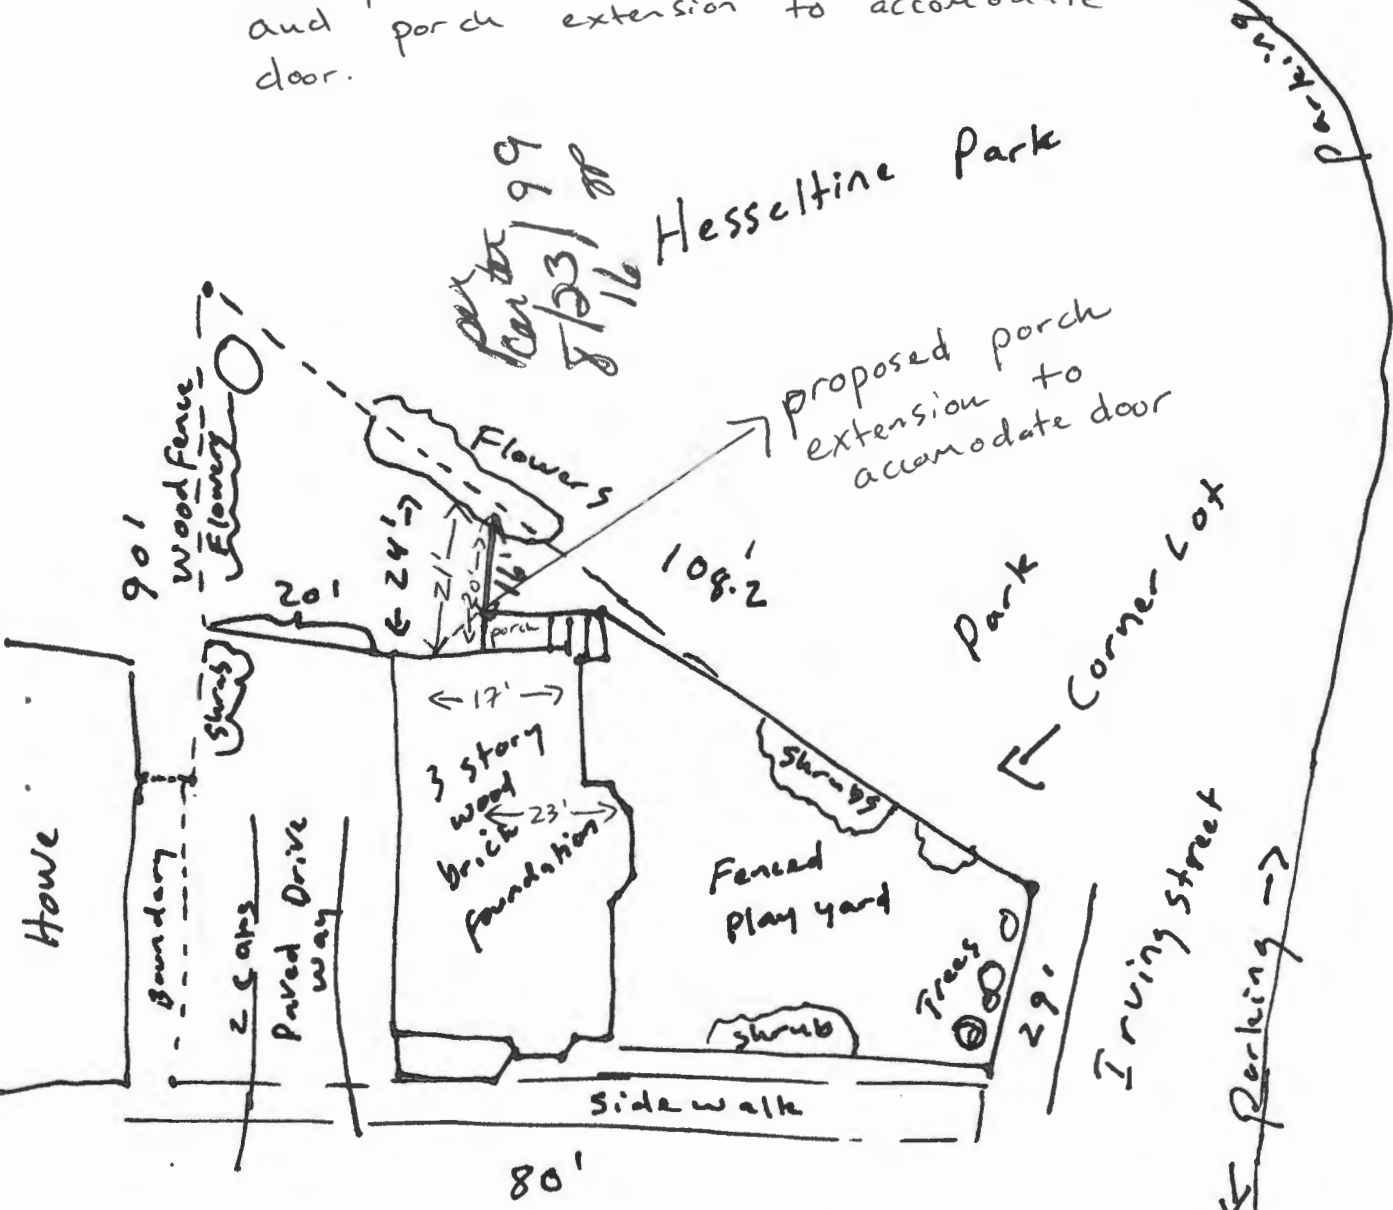 and porch extension to accomodate
door.
Parking
Hesseltine Park
Per
Center
8/23/99
16
proposed porch
extension to
accomodate door
Flowers
Wood Fence
Flowers
90'
20'
← 24' →
21'
20'
16'
108.2'
Park
Corner Lot
porch
Shrubs
← 17' →
3 story
wood
brick
foundation
← 23' →
Shrubs
Fenced
play yard
House
Boundary
2 cars
Paved Drive
way
Trees
29'
Irving Street
Parking →
Shrub
Sidewalk
80'